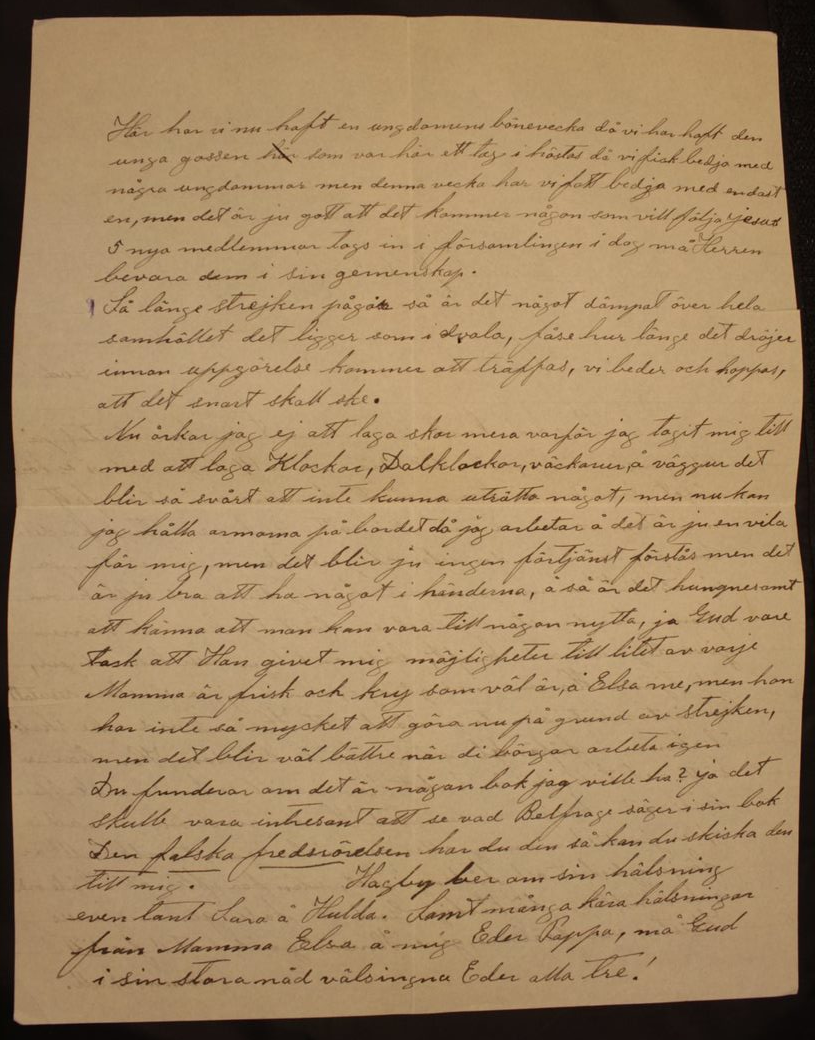 Här har vi nu haft en ungdomens bönevecka då vi har haft den
unga gossen här som var här ett tag i höstas då vi fick bedja med
några ungdommar men denna vecka har vi fått bedja med endast
en, men det är ju gott att det kommer någon som vill följa Jesus
5 nya medlemmar togs in i församlingen i dag må Herren
bevara dem i sin gemenskap.
Så länge strejken pågår så är det något dämpat över hela
samhället det ligger som i dvala, få se hur länge det dröjer
innan uppgörelse kommer att träffas, vi beder och hoppas,
att det snart skall ske.
Nu orkar jag ej att laga skor mera varför jag tagit mig till
med att laga Klockor, Dalklockor, väckarur, å väggur det
blir så svårt att inte kunna uträtta något, men nu kan
jag hålla armarna på bordet då jag arbetar å det är ju en vila
för mig, men det blir ju ingen förtjänst förstås men det
är ju bra att ha något i händerna, å så är det hungnesamt
att känna att man kan vara till någon nytta, ja Gud vare
tack att Han givet mig möjligheter till litet av varje
Mamma är frisk och kry som väl är, å Elsa me, men hon
har inte så mycket att göra nu på grund av strejken,
men det blir väl bättre när di börgar arbeta igen
Du funderar om det är någon bok jag ville ha? ja det
skulle vara intresant att se vad Belfrage säger i sin bok
Den falska fredsrörelsen har du den så kan du skiska den
till mig. Hagby ber om sin hälsning
even tant Sara å Hulda. Samt många kära hälsningar
från Mamma Elsa å mig Eder Pappa, må Gud
i sin stora nåd välsingna Eder alla tre!